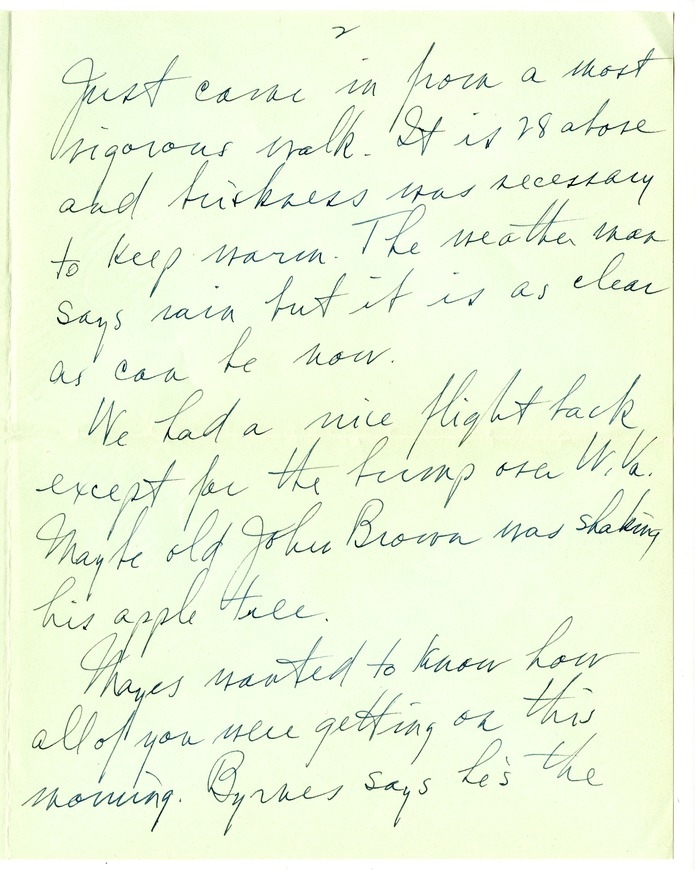 2
Just came in from a most
vigorous walk. It is 28 above
and briskness was necessary
to keep warm. The weather man
says rain but it is as clear
as can be now.
We had a nice flight back
except for the bump over W. Va.
Maybe old John Brown was shaking
his apple tree.
Mayes wanted to know how
all of you were getting on this
morning. Byrnes says he's the